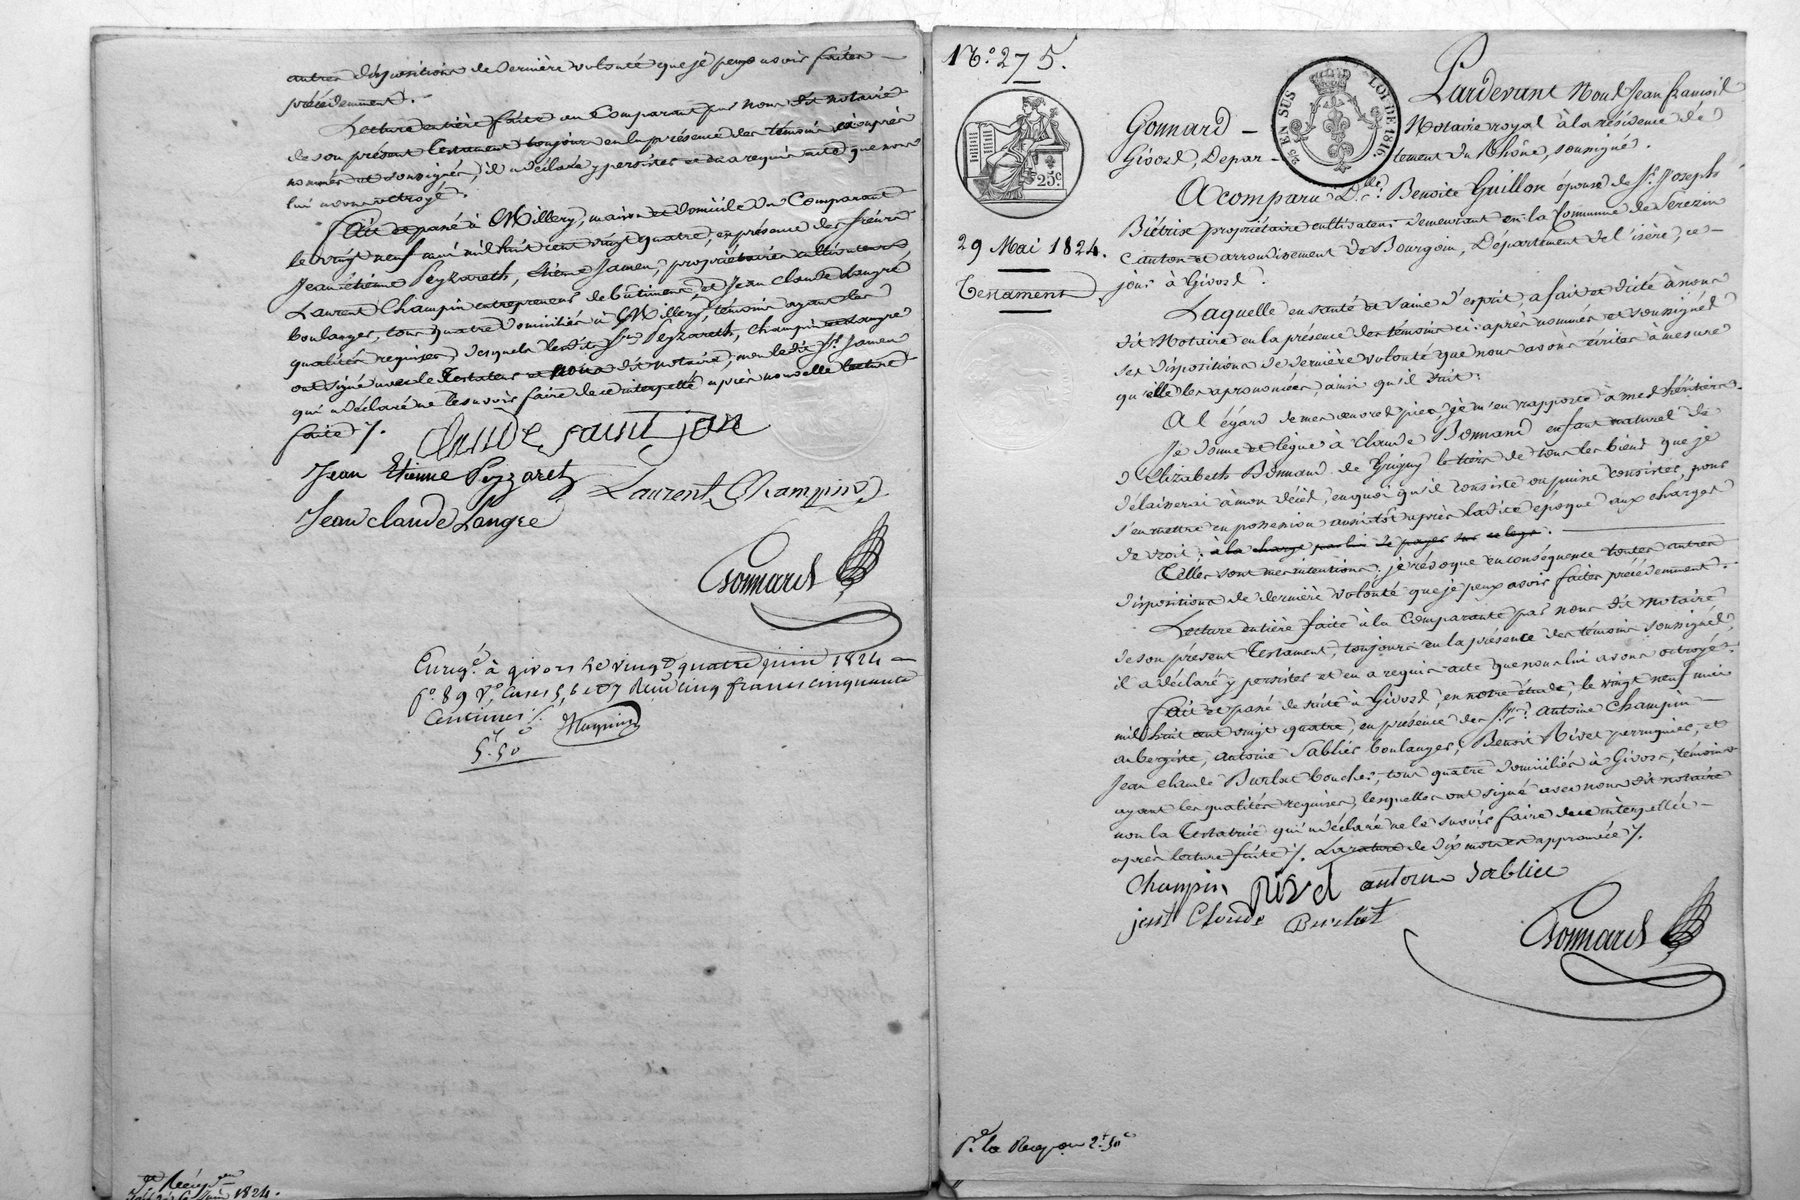 autres dispositions de dernière volonté que je peux avoir faites
précédemment.
Lecture entière faite au Comparant par nous dit notaire
de son présent testament toujours en la présence des témoins ci après
nommés et soussignés, il a déclaré y persister et en a requis acte que nous
lui avons octroyé.
Fait et passé à Millery, maison et domicile du Comparant
le vingt neuf mai mil huit cent vingt quatre, en présence des sieurs
Jean étienne Peyzareth, étienne Jamen, propriétaires cultivateurs
Laurent Champin entrepreneur de bâtiments, et Jean Claude Langré
boulanger, tous quatre domiciliés à Millery, témoins ayant les
qualités requises, desquels lesdits Srs Peyzareth, Champin et Langre
ont signé avec le Testateur et nous dit notaire, non ledit Sr. Jamen
qui a déclaré ne le savoir faire de ce interpellé après nouvelle lecture
faite /.
Claude saint jan
Jean Etienne Peyzaret
Laurent Champin
Jean claude Langre
Gonnard
Enregé. à givors le vingt quatre juin 1824
fo. 89 Vo. Cases 5, 6 et 7 Reçu cinq francs cinquante
Centimes /.
5f. 50c
No. 275.
25c
2/5 EN SUS LOI DE 1816.
Pardevant Nous Jean françois
Gonnard — Notaire royal à la résidence de
Givors, Depar- tement du Rhône, soussigné.
A comparu Dlle. Benoite Guillon épouse de Sr. Joseph
Biétrix propriétaire cultivateur demeurant en la Commune de Serezin
29 Mai 1824.
canton et arrondissement de Bourgoin, Département de l'isère, ce
Testament
jour à Givors.
Laquelle en santé et saine d'esprit, a fait et dicté à nous
dit Notaire en la présence des témoins ci-après nommés et soussignés
ses dispositions de dernière volonté que nous avons écrites à mesure
qu'elle les a prononcées, ainsi qu'il suit:
A l'égard de mes œuvres pies, je m'en rapporte à mes héritiers.
Je donne et lègue à Claude Bonnand enfant naturel de
d'Elizabeth Bonnand de Grigny le tiers de tous les biens que je
délaisserai à mon décès, en quoi qu'il consiste ou puisse consister, pour
s'en mettre en possession aussitôt après ladite époque aux charges
de droit, à la charge par lui de payer sur ce legs.
Telles sont mes intentions; je révoque en conséquence toutes autres
dispositions de dernière volonté que je peux avoir faites précédemment.
Lecture entière faite à la Comparante par nous dit notaire
de son présent Testament, toujours en la présence des témoins soussignés,
il a déclaré y persister et en a requis acte que nous lui avons octroyé.
Fait et passé de suite à Givors, en notre étude, le vingt neuf mai
mil huit cent vingt quatre, en présence des Srs. Antoine Champin
aubergiste, Antoine Sablier boulanger, Benoit Rivet perruquier, et
Jean Claude Burlat boucher, tous quatre domiciliés à Givors, témoins
ayant les qualités requises, lesquelles ont signé avec nous dit notaire
non la Testatrice qui a déclaré ne le savoir faire de ce interpellée
après lecture faite /. La rature de dix mots est approuvée /.
Champin Rivet antoine Sablier
jean Cloude Burlat
Gonnard